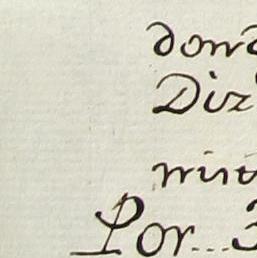 dond
Diz
mist
Por...3